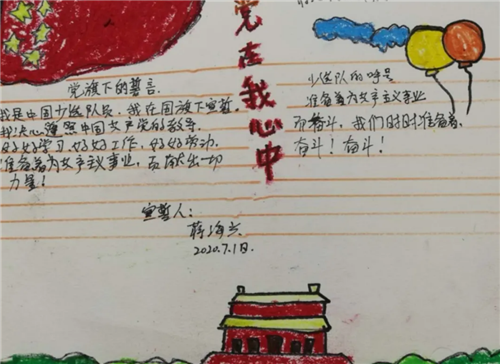 党在我心中
党旗下的誓言
我是中国少先队员,我在国旗下宣誓
我决心遵照中国共产党的教导,
好好学习,好好工作,好好劳动,
准备着为共产主义事业,贡献出一切
力量!
宣誓人:
2020.7.1日.
少先队的呼号
准备着为共产主义事业
而奋斗,我们时时准备着,
奋斗!奋斗!